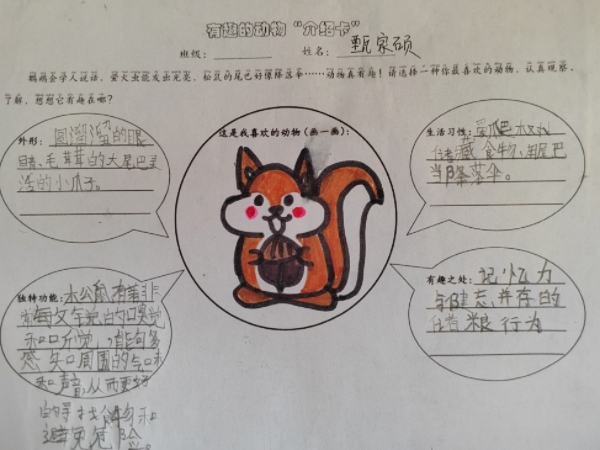 有趣的动物“介绍卡”
班级： 姓名：甄家硕
鹦鹉会学人说话，萤火虫能发出光亮，松鼠的尾巴好像降落伞……动物真有趣！请选择一种你最喜欢的动物，认真观察，
了解，想想它有趣在哪？
外形：圆溜溜的眼
睛、毛茸茸的大尾巴灵
活的小爪子。
这是我喜欢的动物（画一画）：
生活习性：爱爬
储藏食物、用尾巴
当降落伞。
独特功能：松鼠有着非
常 的嗅觉
和听觉，能
周围的气味
和声音，从而更好
的寻找食物和
避免危险。
有趣之处：记忆力
与健忘并存的
储粮行为